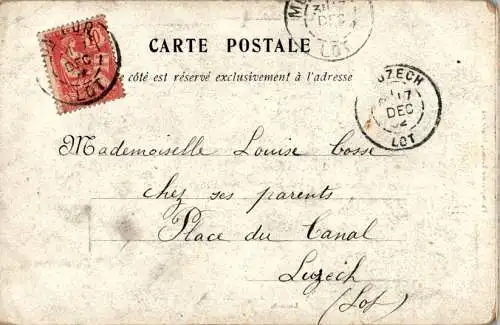 CARTE POSTALE
Ce côté est réservé exclusivement à l'adresse
10
DEC
LOT
DEC
LOT
LUZECH
17
DEC
02
LOT
Mademoiselle Louise Cosse
chez ses parents
Place du Canal
Luzech
(Lot)